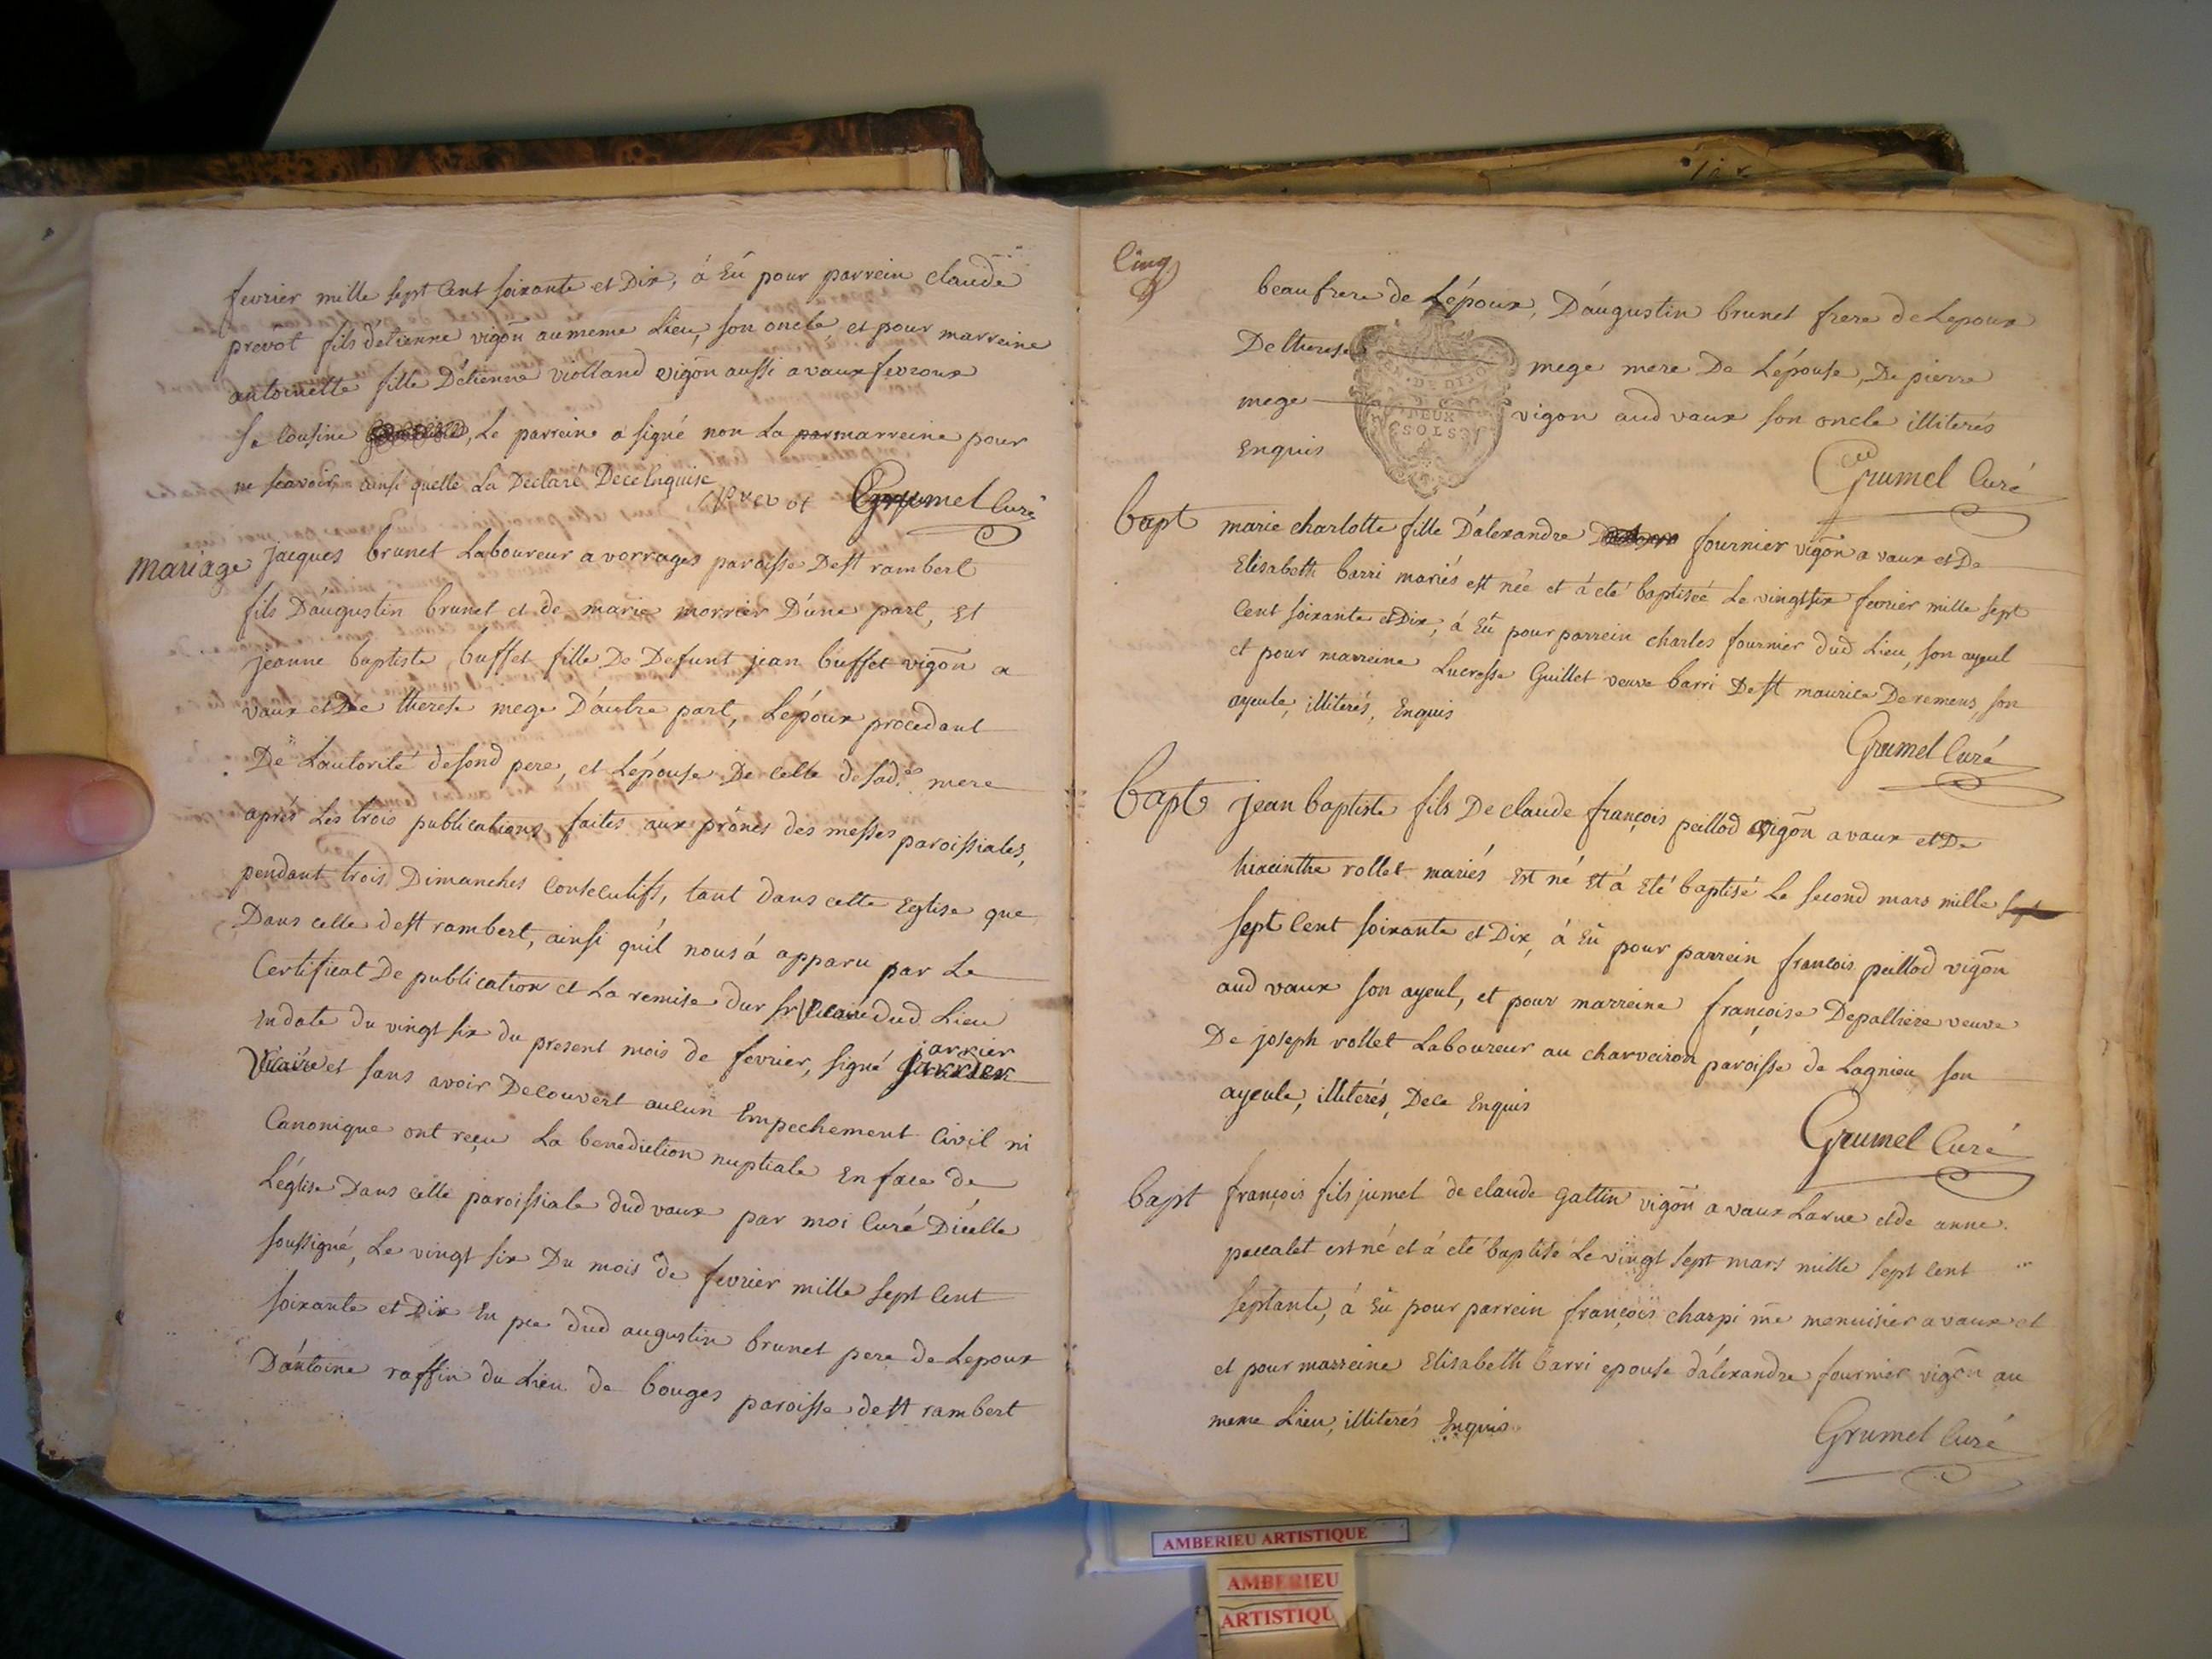 fevrier mille sept Cent soixante et Dix, á Eû pour parrein claude
prevot fils detienne vigõn au meme Lieu, son oncle et pour marreine
antoinette fille Détienne violland vigõn aussi a vaux fevroux
sa Cousine, Le parrein a signé non La par marreine pour
ne scavoir ainsi quelle La Declaré Dece Enquise
Prevot Grumel Curé
mariage jacques brunet Laboureur a vorrages paroisse De st rambert
fils Daugustin brunet et de marie morrier D'une part, Et
jeanne baptiste buffet fille De Defunt jean buffet vigõn a
vaux et De therese mege D'áutre part, L'époux procedant
De L'autorité de sond pere, et L'épouse De celle de sad.e mere
aprés Les trois publications faites aux prônes des messes paroissiales,
pendant trois Dimanches Consecutifs, tant dans cette Eglise que
Dans celle de st rambert, ainsi quil nous á apparu par Le
Certificat De publication et La remise dur sr vicaire dud Lieu
En date du vingt six du present mois de fevrier, signé jarrier
vicaire et sans avoir Decouvert aucun Empechement Civil ni
Canonique ont reçu La benediction nuptiale En face de
L'église Dans celle paroissiale dud vaux par moi Curé D'icelle
soussigné, Le vingt six Du mois de fevrier mille sept Cent
soixante et Dix En pce dud augustin brunet pere de Lepoux
D'ántoine raffin du Lieu de bouges paroisse de st rambert
Cinq
beaufrere de L'époux, D'áugustin brunet frere de Lepoux
De therese mege mere De L'épouse, De pierre
mege vigon aud vaux son oncle illiterés
Enquis
DE DIJON
DEUX
SOLS
Grumel Curé
bapt marie charlotte fille D'alexandre fournier vigõn a vaux et De
Elisabeth barri mariés est née et á eté baptisée Le vingt six fevrier mille sept
Cent soixante et Dix, á Eû pour parrein charles fournier dud Lieu, son ayeul
et pour marreine Lucresse Guillet veuve barri De st maurice De remens, son
ayeule, illiterés, Enquis
Grumel Curé
bapt jean baptiste fils De claude françois peillod vigõn a vaux et De
hiacinthe rollet mariés Est né Et á Eté baptisé Le second mars mille sept
sept Cent soixante et Dix, á Eû pour parrein francois peillod vigõn
aud vaux son ayeul, et pour marreine françoise Depalliere veuve
De joseph rollet Laboureur au charveiron paroisse de Lagnieu son
ayeule, illiterés, Dece Enquis
Grumel Curé
bapt françois fils jumel de claude gallin vigõn a vaux Larue et de anne
paccalet est né et á eté baptisé Le vingt sept mars mille sept Cent
septante, á Eû pour parrein françois charpi mẽ menuisier a vaux et
et pour marreine Elisabeth barri epouse dálexandre fournier vigõn au
meme Lieu, illiterés Enquis
Grumel Curé
AMBERIEU ARTISTIQUE
AMBERIEU
ARTISTIQU